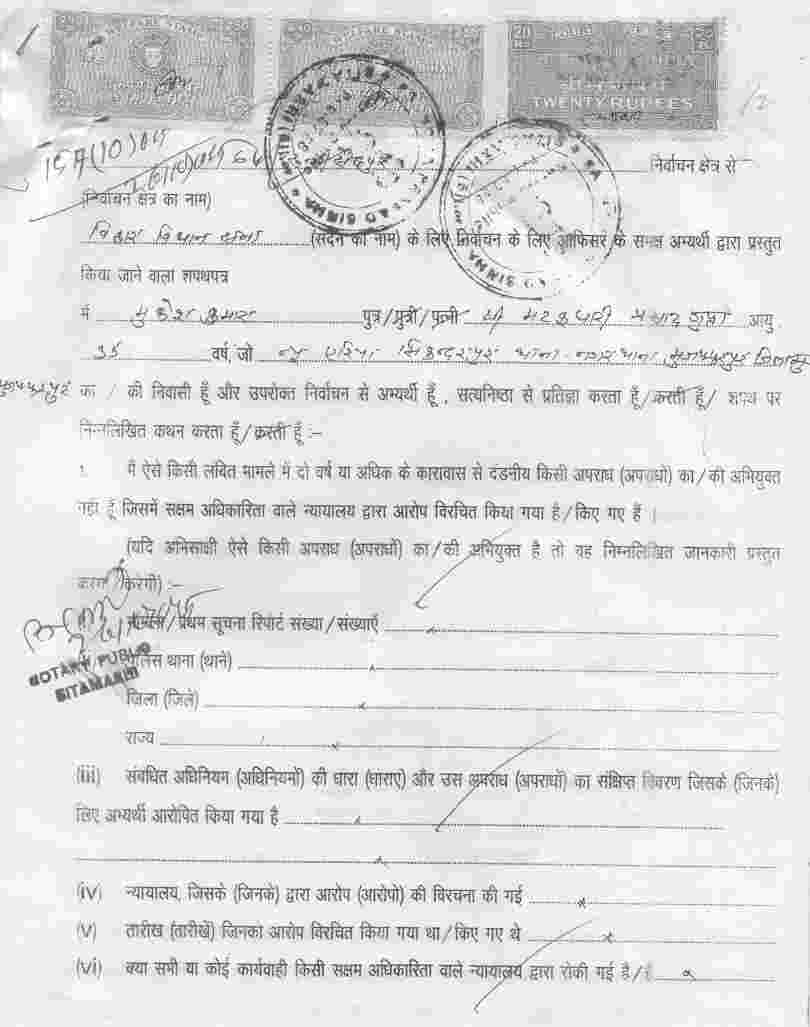 WELFARE STAMP
20 RS.
भारत INDIA
TWENTY RUPEES
निर्वाचन क्षेत्र से
(निर्वाचन क्षेत्र का नाम)
बिहार विधान सभा (सदन का नाम) के लिए निर्वाचन के लिए आफिसर के समक्ष अभ्यर्थी द्वारा प्रस्तुत
किया जाने वाला शपथपत्र
मैं मुकेश कुमार पुत्र/पुत्री/पत्नी श्री प्रसाद गुप्ता आयु
35 वर्ष, जो न्यू एरिया सिकन्दरपुर थाना-नगर थाना मुजफ्फरपुर जिला
मुजफ्फरपुर का / की निवासी हूँ और उपरोक्त निर्वाचन से अभ्यर्थी हूँ , सत्यनिष्ठा से प्रतिज्ञा करता हूँ/करती हूँ/ शपथ पर
निम्नलिखित कथन करता हूँ/करती हूँ :-
1. मैं ऐसे किसी लंबित मामले में दो वर्ष या अधिक के कारावास से दंडनीय किसी अपराध (अपराधों) का/की अभियुक्त
नहीं हूँ जिसमें सक्षम अधिकारिता वाले न्यायालय द्वारा आरोप विरचित किया गया है/किए गए हैं ।
(यदि अभिसाक्षी ऐसे किसी अपराध (अपराधों) का/की अभियुक्त है तो वह निम्नलिखित जानकारी प्रस्तुत
करेगा (करेगी) :-
मामला/प्रथम सूचना रिपोर्ट संख्या/संख्याएँ
पुलिस थाना (थाने)
NOTARY PUBLIC
SITAMARHI
जिला (जिले)
राज्य
(iii) संबंधित अधिनियम (अधिनियमों) की धारा (धाराए) और उस अपराध (अपराधों) का संक्षिप्त विवरण जिसके (जिनके)
लिए अभ्यर्थी आरोपित किया गया है
(iv) न्यायालय, जिसके (जिनके) द्वारा आरोप (आरोपो) की विरचना की गई
(v) तारीख (तारीखें) जिनका आरोप विरचित किया गया था/किए गए थे
(vi) क्या सभी या कोई कार्यवाही किसी सक्षम अधिकारिता वाले न्यायालय द्वारा रोकी गई है/हैं